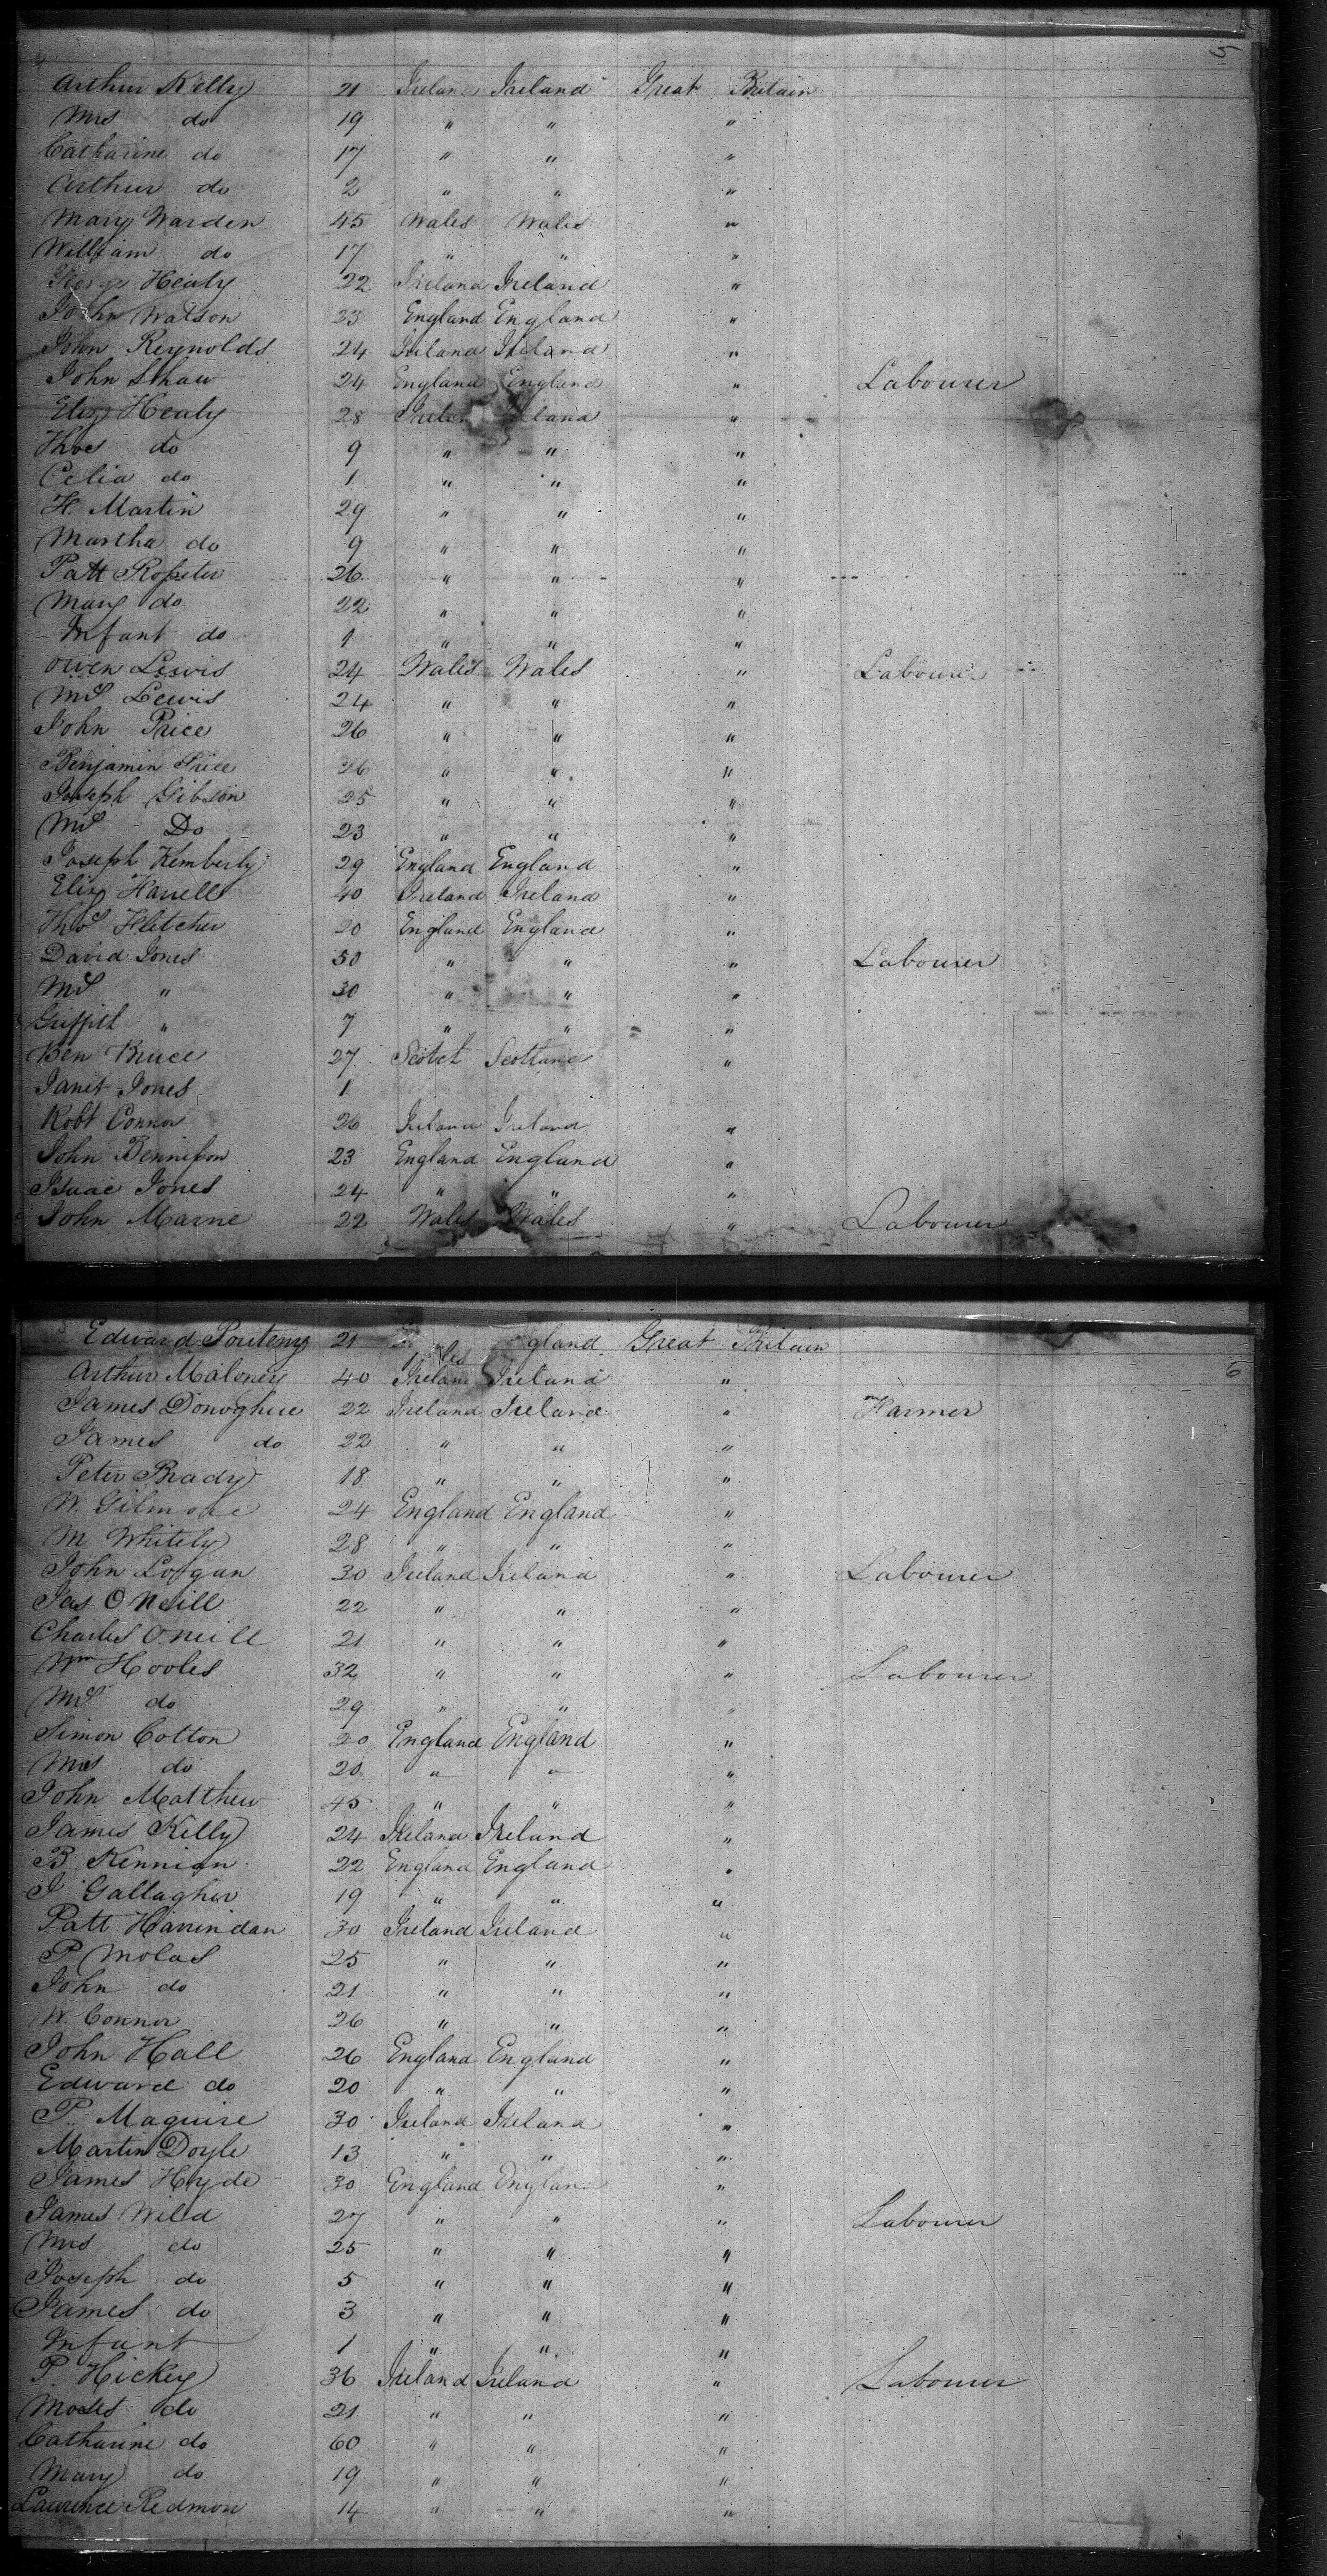 5
Arthur Kelly 21 Ireland Ireland Great Britain
Mrs do 19 " " "
Catharine do 17 " " "
Arthur do 2 " " "
Mary Warden 45 Wales Wales "
William do 17 " " "
George Healy 22 Ireland Ireland "
John Watson 23 England England "
John Reynolds 24 Ireland Ireland "
John Shaw 24 England England " Labourer
Eliz Healy 28 Ireland "
Thos do 9 " " "
Celia do 1 " " "
H. Martin 29 " " "
Martha do 9 " " "
Patt Rossiter 26 " " "
Mary do 22 " " "
Infant do 1 " " "
Owen Lewis 24 Wales Wales " Labourer
Mrs Lewis 24 " " "
John Price 26 " " "
Benjamin Price 26 " " "
Joseph Gibson 25 " " "
Mrs Do 23 " " "
Joseph Kemberly 29 England England "
Eliz 40 Ireland Ireland "
Thos Fletcher 20 England England "
David Jones 50 " " " Labourer
Mrs " 30 " " "
Griffith " 7 " " "
Ben Bruce 27 Scotch Scotland "
Janet Jones 1
Robt Connor 26 Ireland Ireland "
John Bennisson 23 England England "
Isaac Jones 24 " " "
John Marne 22 Wales Wales " Labourer
6
Edward 21 gland Great Britain
Arthur Maloney 40 Ireland Ireland "
James Donoghue 22 Ireland Ireland " Farmer
James do 22 " " "
Peter Brady 18 " " "
W. Gilmore 24 England England "
M Whitely 28 " " "
John Logan 30 Ireland Ireland " Labourer
Jas O Neill 22 " " "
Charles O.Neill 21 " " "
Wm Hooles 32 " " " Labourer
Mrs do 29 " " "
Simon Cotton 20 England England "
Mrs do 20 " " "
John Matthew 45 " " "
James Kelly 24 Ireland Ireland "
B. Kennion 22 England England "
J Gallagher 19 " " "
Patt Harrindan 30 Ireland Ireland "
P Molas 25 " " "
John do 21 " " "
W. Connor 26 " " "
John Hall 26 England England "
Edward do 20 " " "
P. Maguire 30 Ireland Ireland "
Martin Doyle 13 " " "
James Hyde 30 England England "
James Wild 27 " " " Labourer
Mrs do 25 " " "
Joseph do 5 " " "
James do 3 " " "
Infant 1 " " "
P. Hickey 36 Ireland Ireland " Labourer
Moses do 21 " " "
Catharine do 60 " " "
Mary do 19 " " "
Laurence Redmon 14 " " "